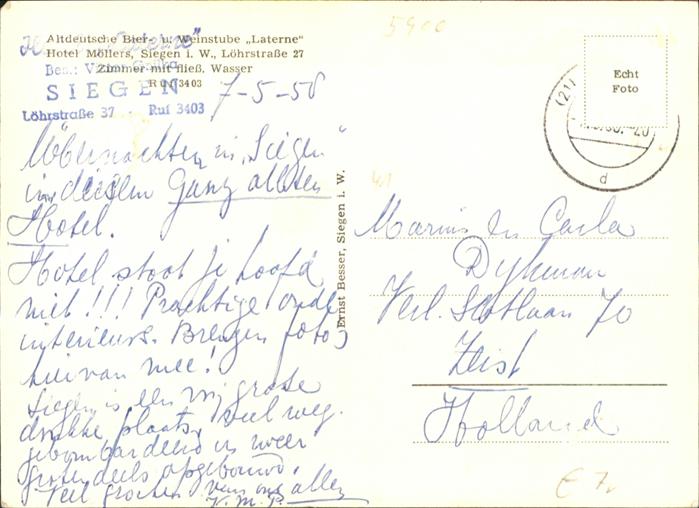 Altdeutsche Bier- u. Weinstube „Laterne“
Hotel Möllers, Siegen i. W., Löhrstraße 27
Zimmer mit fließ. Wasser
Ruf 3403
Bes.:
SIEGEN
Löhrstraße 37 - Ruf 3403
7-5-58
Übernachten in „Siegen“
in diesem Ganz alten
Hotel.
Hotel staat je hoofd
niet!!! Prachtige oude
interieurs. Brengen foto's
hiervan mee!
Siegen is een vrij grote
drukke plaats, veel weg
gebombardeerd en weer
grotendeels opgebouwd.
Veel groeten van ons allen
V.M.P.
Ernst Besser, Siegen i. W.
5900
Echt
Foto
(21)
d
Marius en Carla
Dykman
Verl. Slotlaan 70
Zeist
Holland
€ 7,